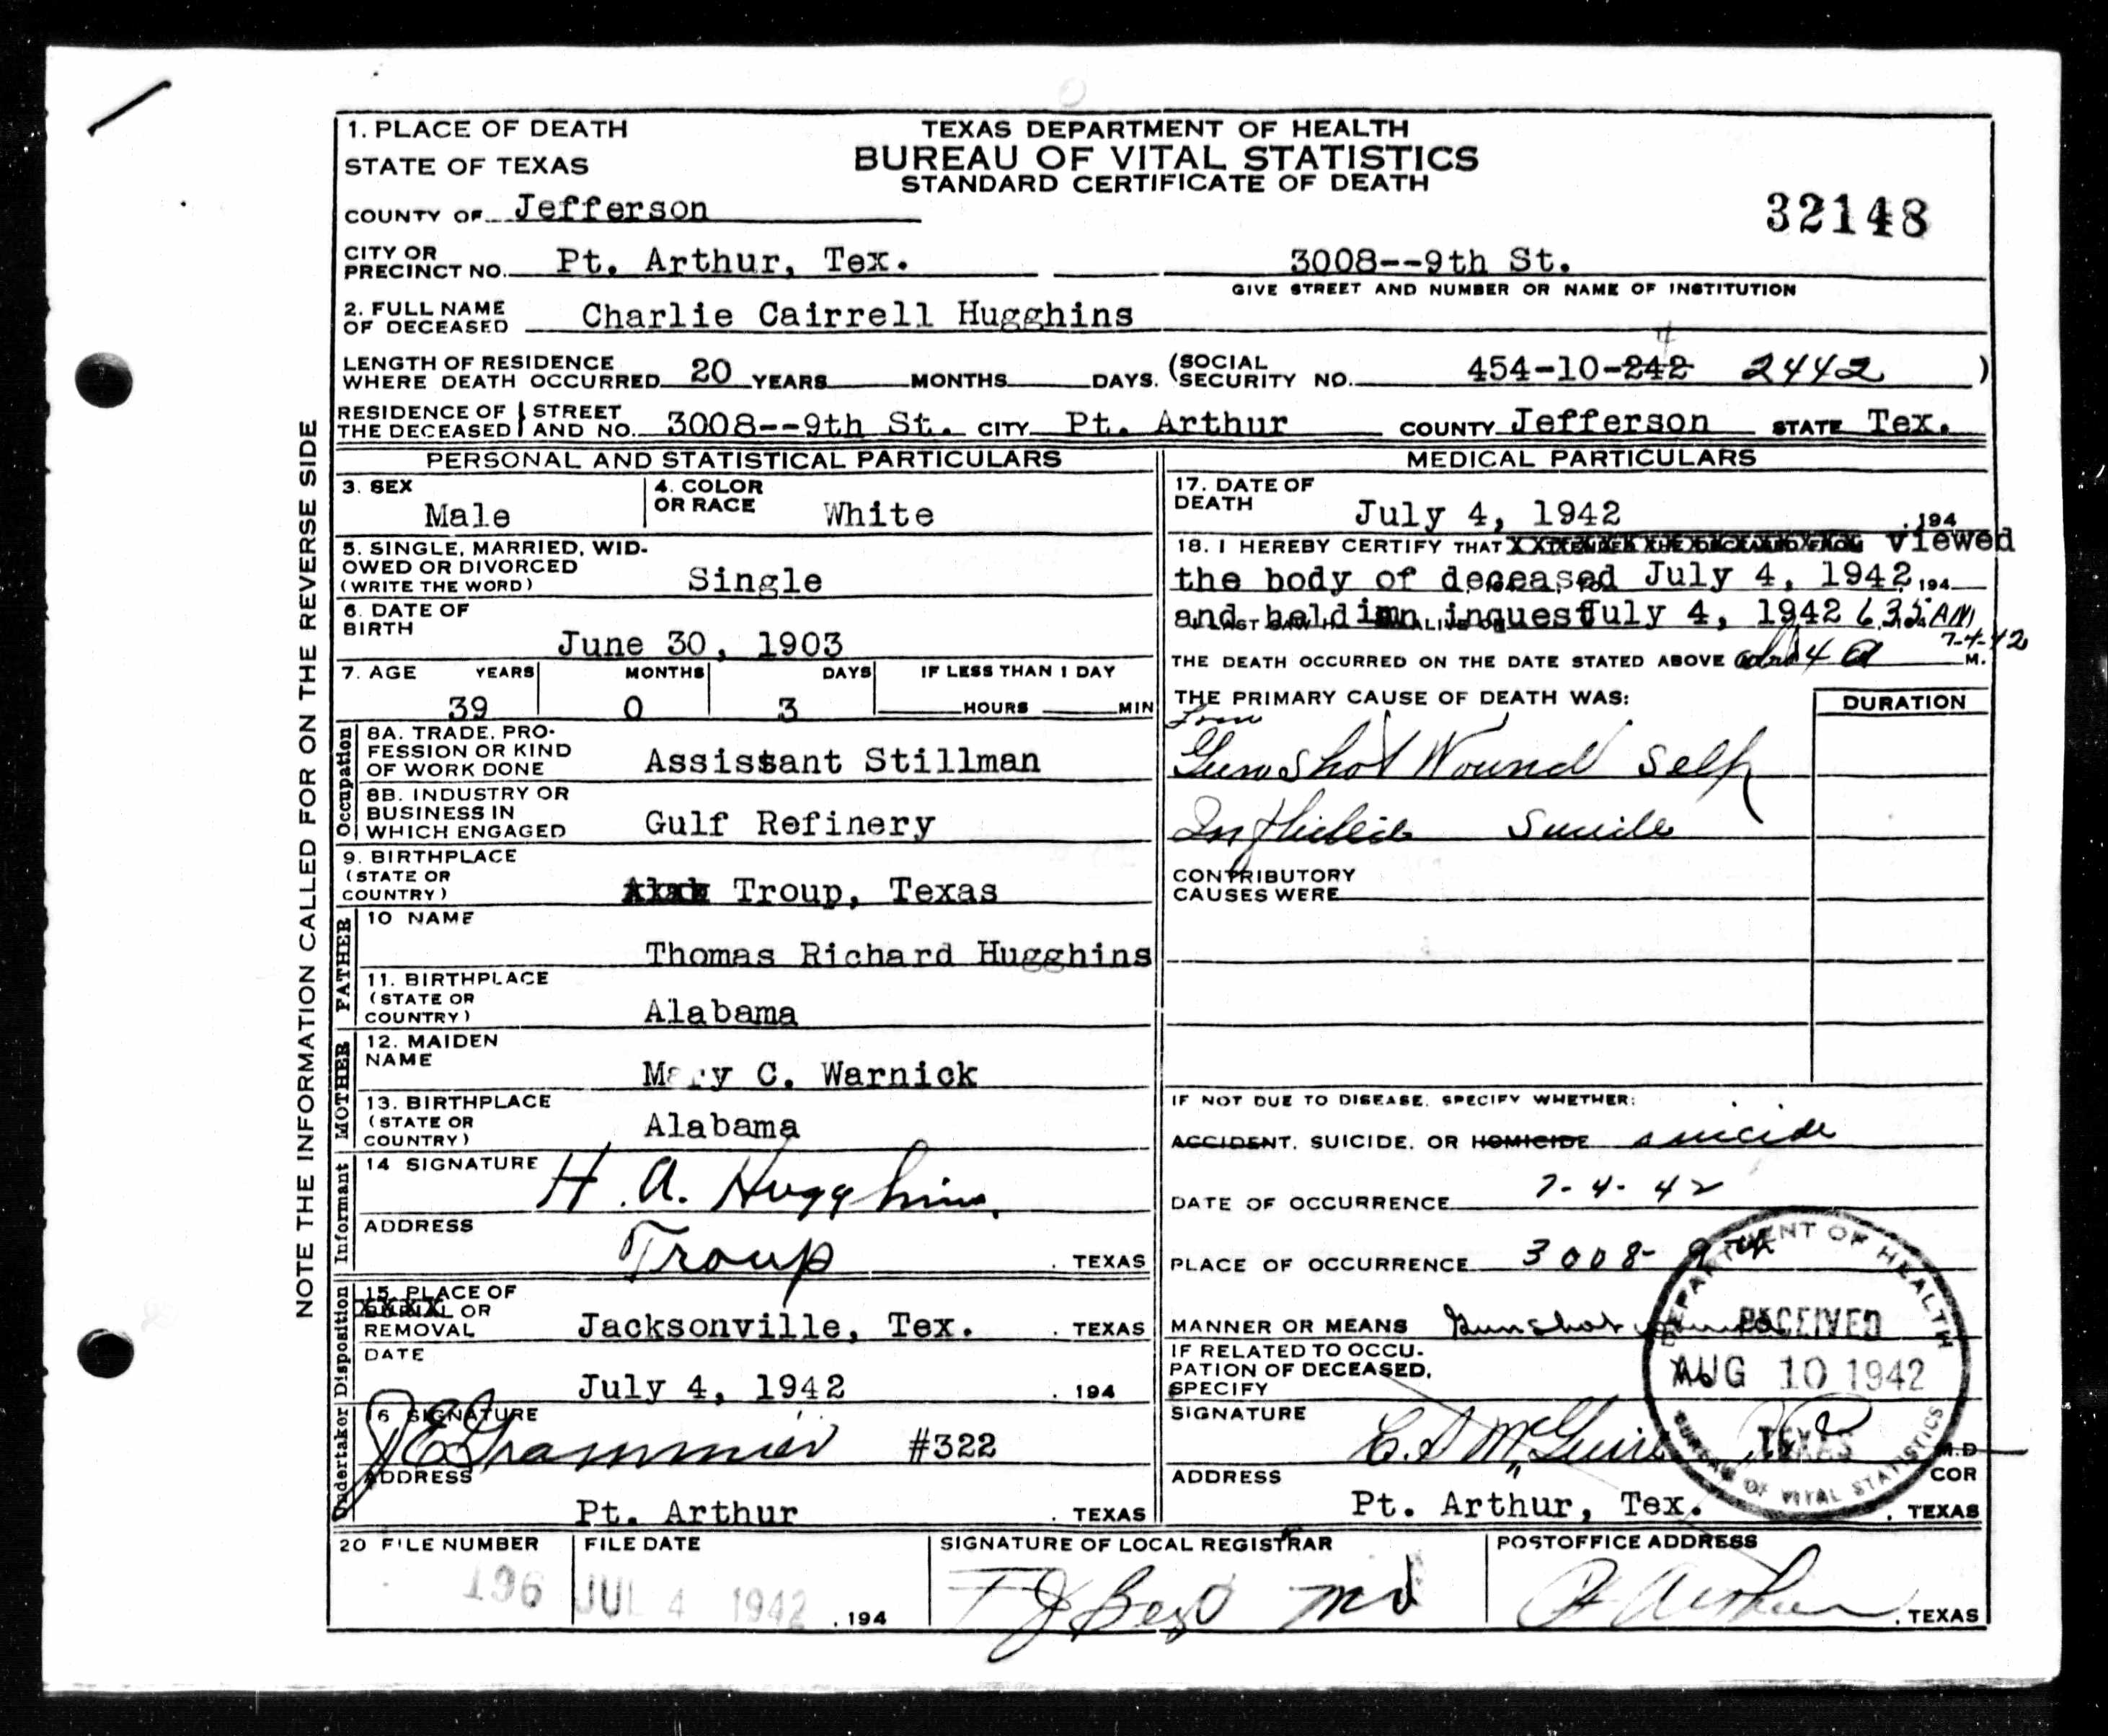 NOTE THE INFORMATION CALLED FOR ON THE REVERSE SIDE
1. PLACE OF DEATH
STATE OF TEXAS
TEXAS DEPARTMENT OF HEALTH
BUREAU OF VITAL STATISTICS
STANDARD CERTIFICATE OF DEATH
32148
COUNTY OF Jefferson
CITY OR PRECINCT NO. Pt. Arthur, Tex. 3008--9th St.
GIVE STREET AND NUMBER OR NAME OF INSTITUTION
2. FULL NAME OF DECEASED Charlie Cairrell Hugghins
LENGTH OF RESIDENCE WHERE DEATH OCCURRED 20 YEARS MONTHS DAYS. (SOCIAL SECURITY NO. 454-10-242 2442 )
4
RESIDENCE OF THE DECEASED STREET AND NO. 3008--9th St. CITY Pt. Arthur COUNTY Jefferson STATE Tex.
PERSONAL AND STATISTICAL PARTICULARS
3. SEX Male
4. COLOR OR RACE White
5. SINGLE, MARRIED, WIDOWED OR DIVORCED
(WRITE THE WORD) Single
6. DATE OF BIRTH June 30, 1903
7. AGE YEARS MONTHS DAYS IF LESS THAN 1 DAY
39 0 3 HOURS MIN
Occupation
8A. TRADE, PRO-
FESSION OR KIND
OF WORK DONE Assistant Stillman
8B. INDUSTRY OR
BUSINESS IN
WHICH ENGAGED Gulf Refinery
9. BIRTHPLACE
(STATE OR
COUNTRY) Troup, Texas
FATHER
10 NAME
Thomas Richard Hugghins
11. BIRTHPLACE
(STATE OR
COUNTRY) Alabama
MOTHER
12. MAIDEN
NAME
Mary C. Warnick
13. BIRTHPLACE
(STATE OR
COUNTRY) Alabama
Informant
14 SIGNATURE H. A. Hugghins.
ADDRESS Troup . TEXAS
Disposition
15. PLACE OF
BURIAL OR
REMOVAL Jacksonville, Tex. . TEXAS
DATE
July 4, 1942 . 194
Undertaker
16 SIGNATURE
J E Grammier #322
ADDRESS
Pt. Arthur . TEXAS
MEDICAL PARTICULARS
17. DATE OF
DEATH July 4, 1942 . 194
18. I HEREBY CERTIFY THAT viewed
the body of deceased July 4, 1942, 194
and held an inquest July 4, 1942 6.35 AM
7-4-42
THE DEATH OCCURRED ON THE DATE STATED ABOVE M.
THE PRIMARY CAUSE OF DEATH WAS: DURATION
from
Gunshot Wound self
Inflicted Suicide
CONTRIBUTORY
CAUSES WERE
IF NOT DUE TO DISEASE, SPECIFY WHETHER:
ACCIDENT, SUICIDE, OR HOMICIDE suicide
DATE OF OCCURRENCE 7-4-42
PLACE OF OCCURRENCE 3008- 9th
MANNER OR MEANS Gunshot
IF RELATED TO OCCU-
PATION OF DECEASED,
SPECIFY
SIGNATURE C. D McGuire M.D
COR
ADDRESS Pt. Arthur, Tex. . TEXAS
DEPARTMENT OF HEALTH
RECEIVED
AUG 10 1942
TEXAS
BUREAU OF VITAL STATISTICS
20 FILE NUMBER FILE DATE SIGNATURE OF LOCAL REGISTRAR POSTOFFICE ADDRESS
196 JUL 4 1942 . 194 Pt Arthur . TEXAS